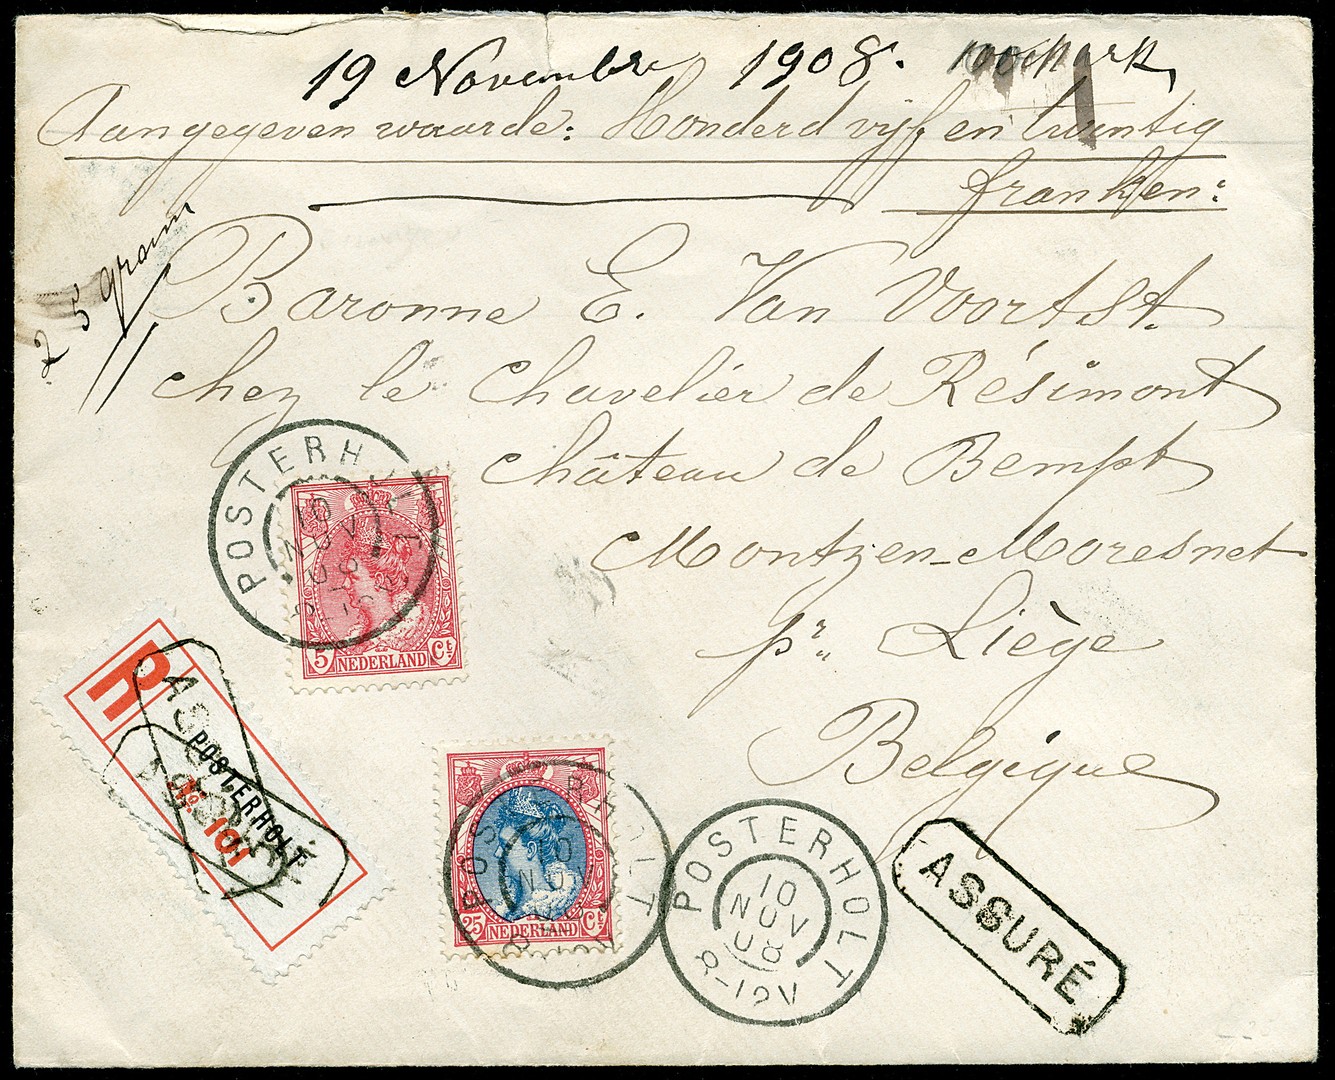 19 Novembre 1908. 100 Mark
Aangegeven waarde: Honderd vijf en twintig
franken:
25 gram
Baronne E. Van Voortst.
chez le Chavelier de Résimont
Château de Bempt
Montzen-Moresnet
pr Liège
Belgique
POSTERHOLT
10
NOV
08
8-12V
5 NEDERLAND Ct
R
POSTERHOLT
No 101
ASSURÉ
ASSURÉ
POSTERHOLT
10
NOV
25 NEDERLAND Ct
POSTERHOLT
10
NOV
08
8-12V
ASSURÉ